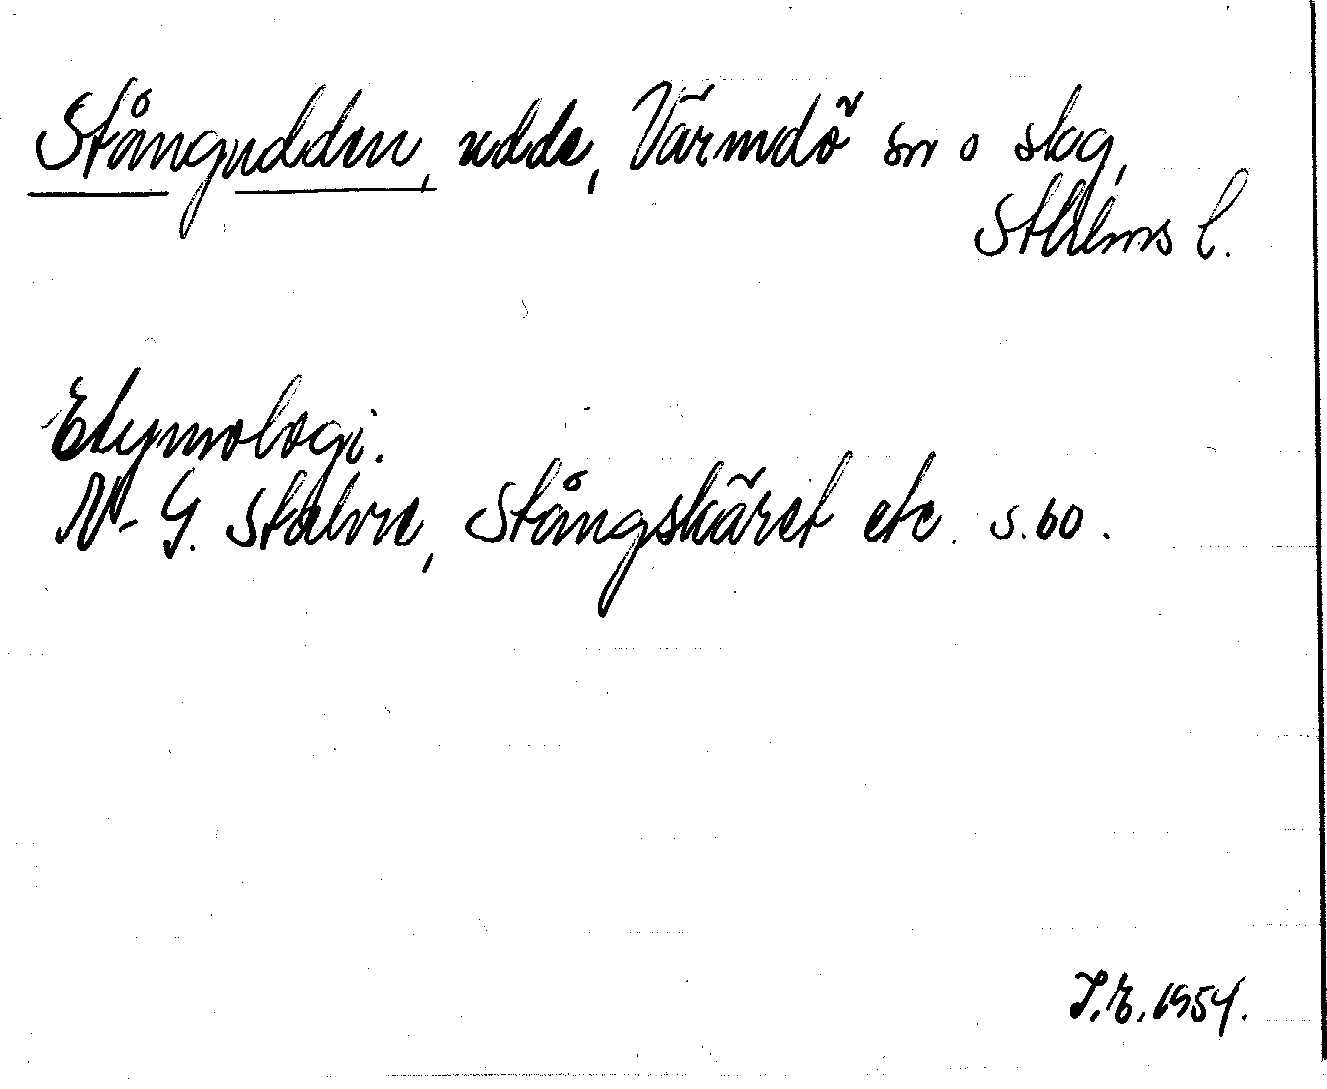 Stångudden, udde, Värmdö sn o skg,
Sthlms l.
Etymologi.
N-G. Stalvre, Stångskäret etc. s. 60.
I.E. 1954.